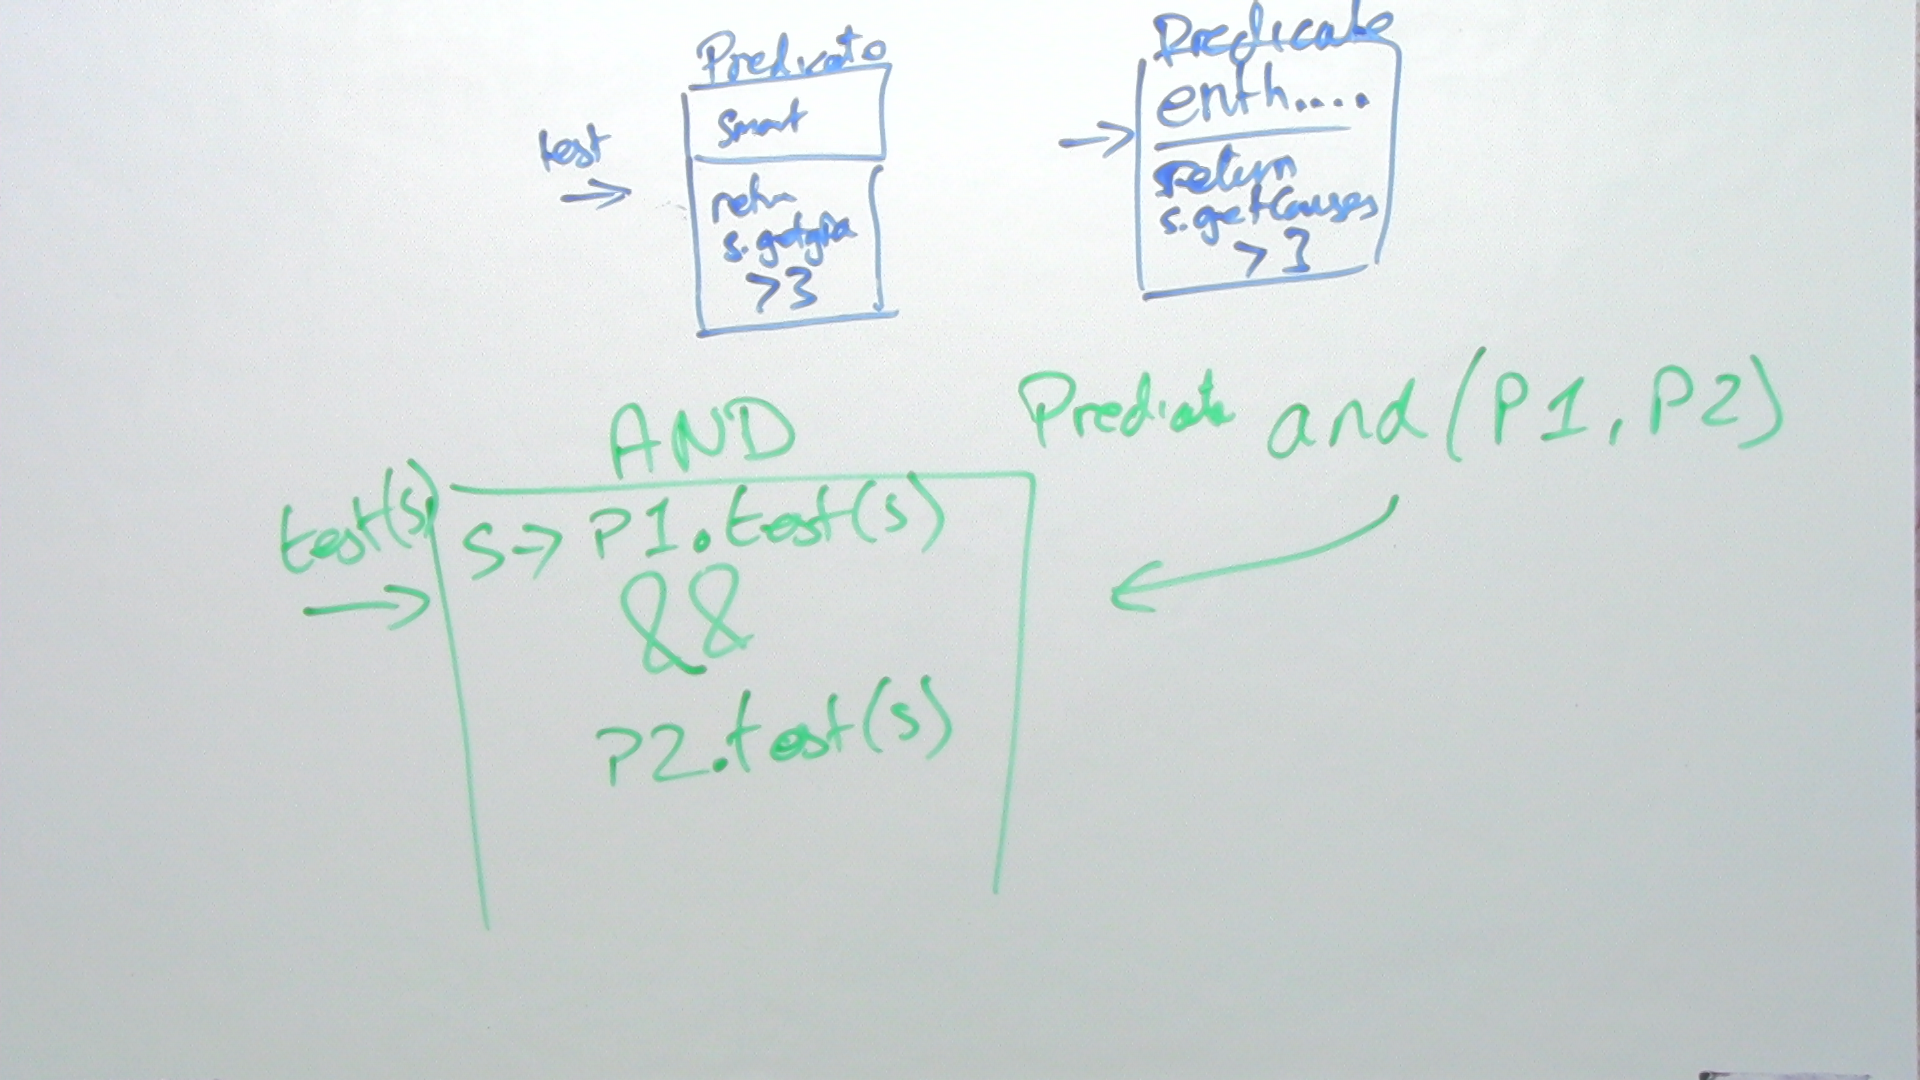 Predicate
Smart
test
retn
s.getgpa
>3
Predicate
enth....
return
s.getCourses
>3
Predicate and (P1, P2)
AND
test(s)
S-> P1.test(s)
&&
P2.test(s)